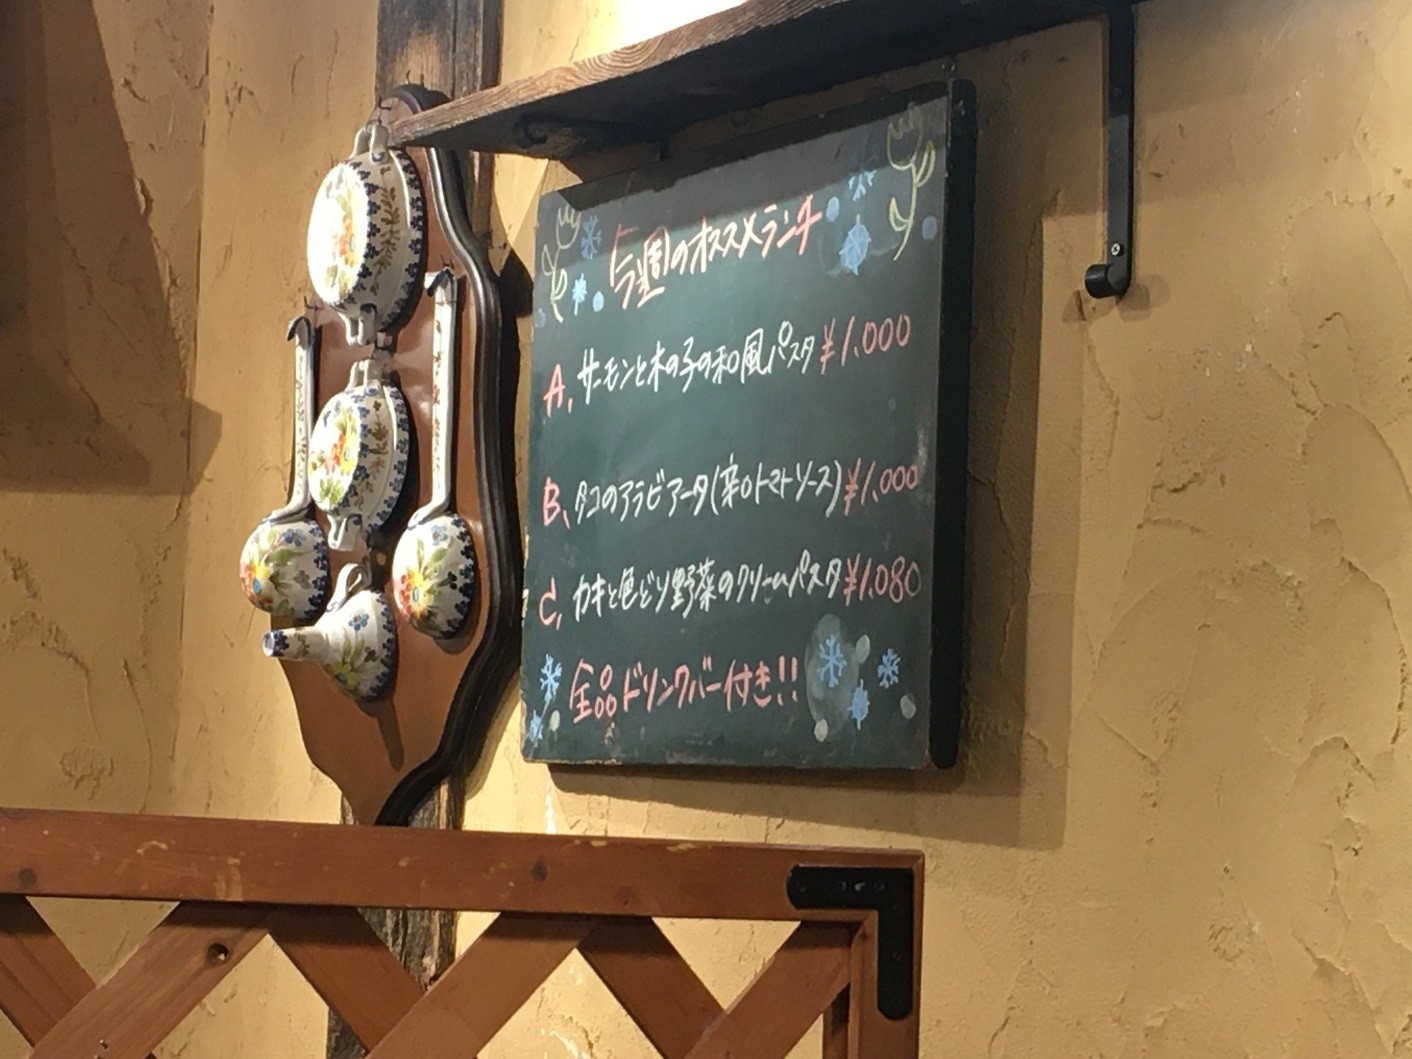 今週のオススメランチ
A, サーモンと木の子の和風パスタ ¥1,000
B, タコのアラビアータ(辛口トマトソース) ¥1,000
C, カキと色どり野菜のクリームパスタ ¥1,080
全品ドリンクバー付き!!